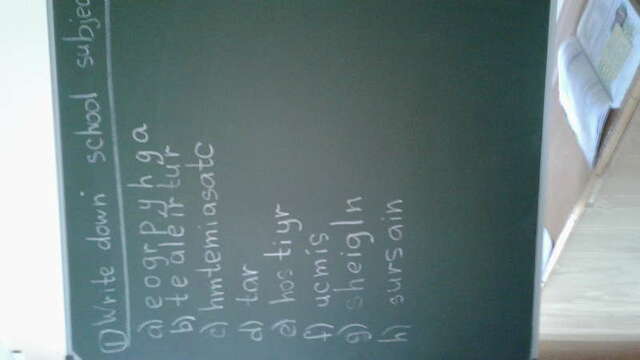 1) Write down school subjec
a) eogrpyhga
b) tealeirtur
c) hmtemiasatc
d) tar
e) hostiyr
f) ucmis
g) sheigln
h) sursain